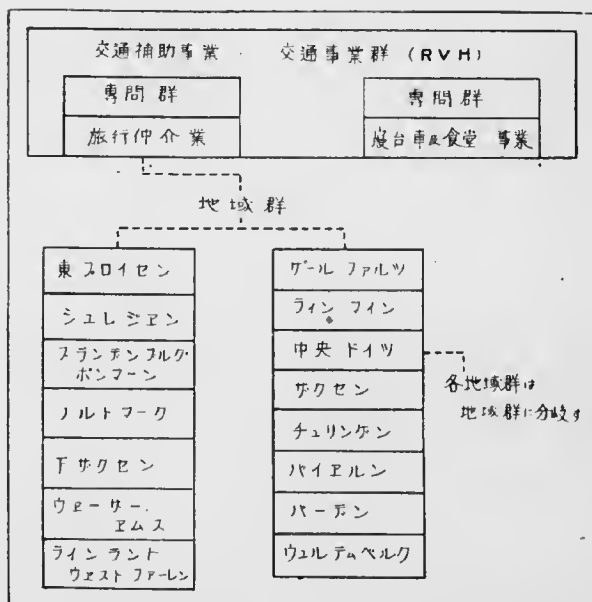 交通補助事業　交通事業群 (RVH)
専問群
旅行仲介業
専問群
寝台車及食堂 事業
地域群
東プロイセン
シュレジエン
ブランデンブルグ
ポンマーン
ノルトマーク
下ザクセン
ウェーザー.
エムス
ラインラント
ウエストファーレン
ザール ファルツ
ライン マイン
中央 ドイツ
ザクセン
チュリンゲン
バイエルン
バーデン
ウュルテムベルク
各地域群は
地域群に分岐す